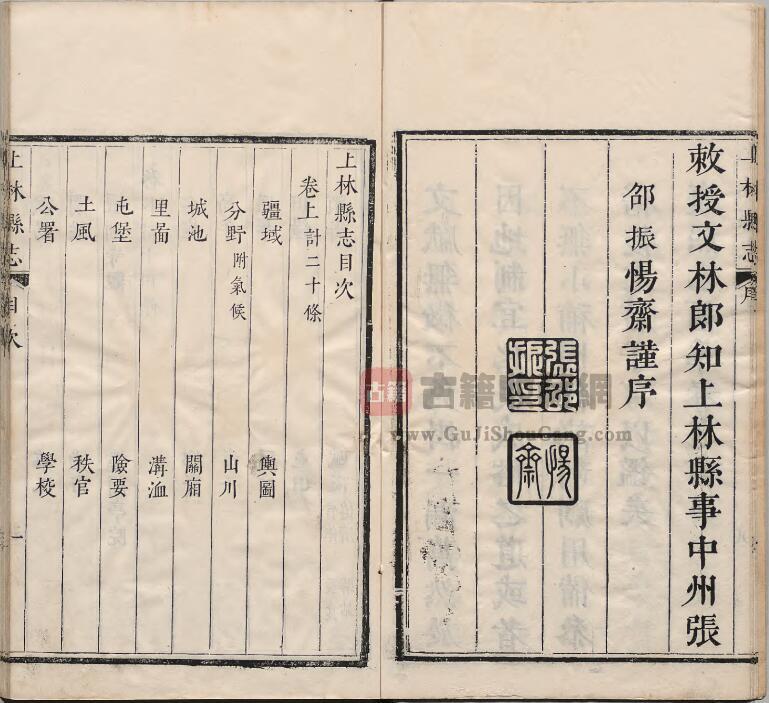 上林縣志 序
敕授文林郎知上林縣事中州張
邵振惕齋謹序
張邵振印
惕齋
上林縣志目次
卷上計二十條
疆域 輿圖
分野附氣候 山川
城池 關廂
里啚 溝洫
屯堡 險要
土風 秩官
公署 學校
上林縣志 目次 一
古籍 古籍收網
www.GuJiShouGang.com